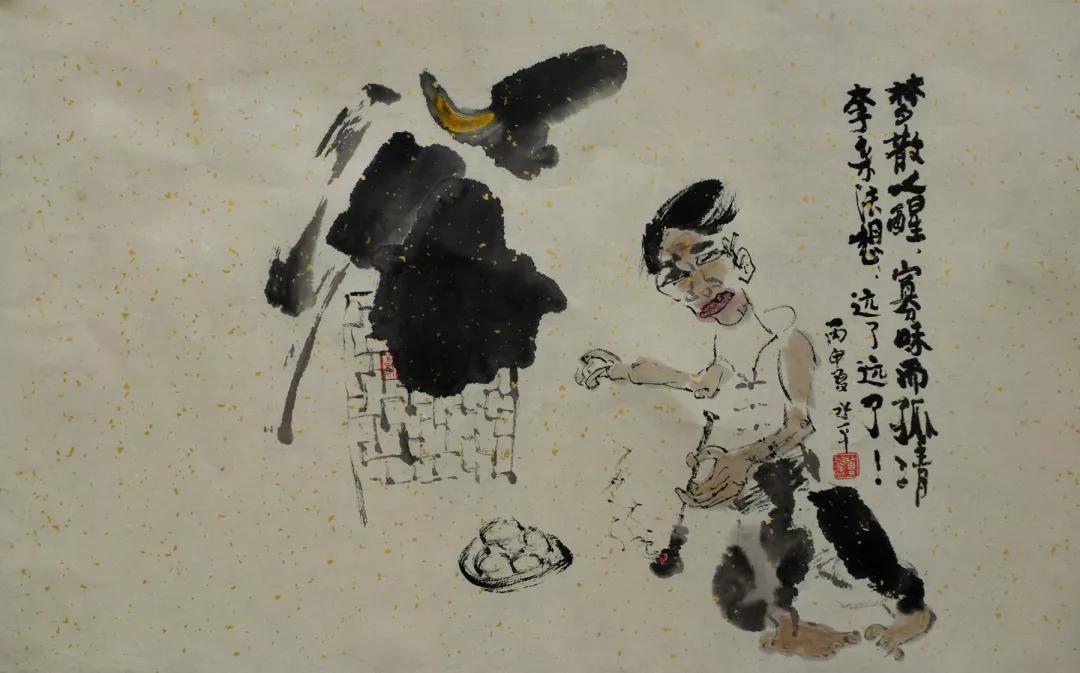 梦散人醒、寡味而孤清
李法想、远了远了！
丙申夏